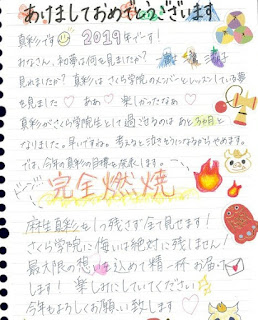 あけましておめでとうございます
真彩です 2019年です!
みなさん、初夢は何を見ましたか?
見れましたか? 真彩は さくら学院のメンバーとレッスンしている夢
を見ました♡ ああ♡ 楽しかったなぁ♡
真彩がさくら学院生として過ごせるのは あと3ヶ月と
なりました。早いですね。考えると泣きそうになるからやめます。
では、今年の真彩の目標を発表します。
ドドン
完全燃焼
麻生真彩を1つ残さず全て見せます!
さくら学院に悔いは絶対に残しません!
最大限の想いを込めて精一杯お届け
します! 楽しみにしていてください
今年もよろしくお願い致します♡